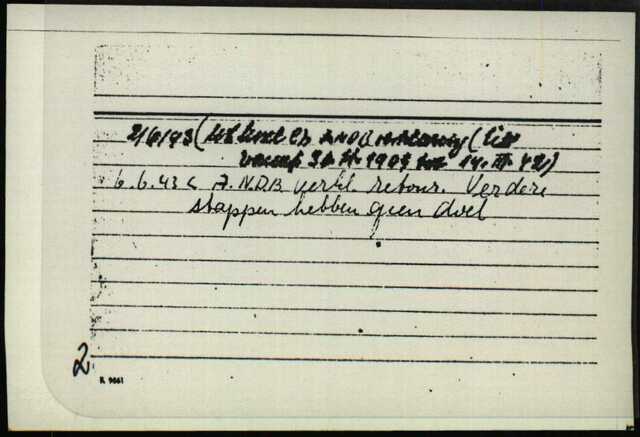 2/6/43 ( A.N.D.B. (lid
vanaf 1909 tot 14. III. 42)
6.6.43 A.N.D.B. verkl. retour. Verdere
stappen hebben geen doel
2
K 9661